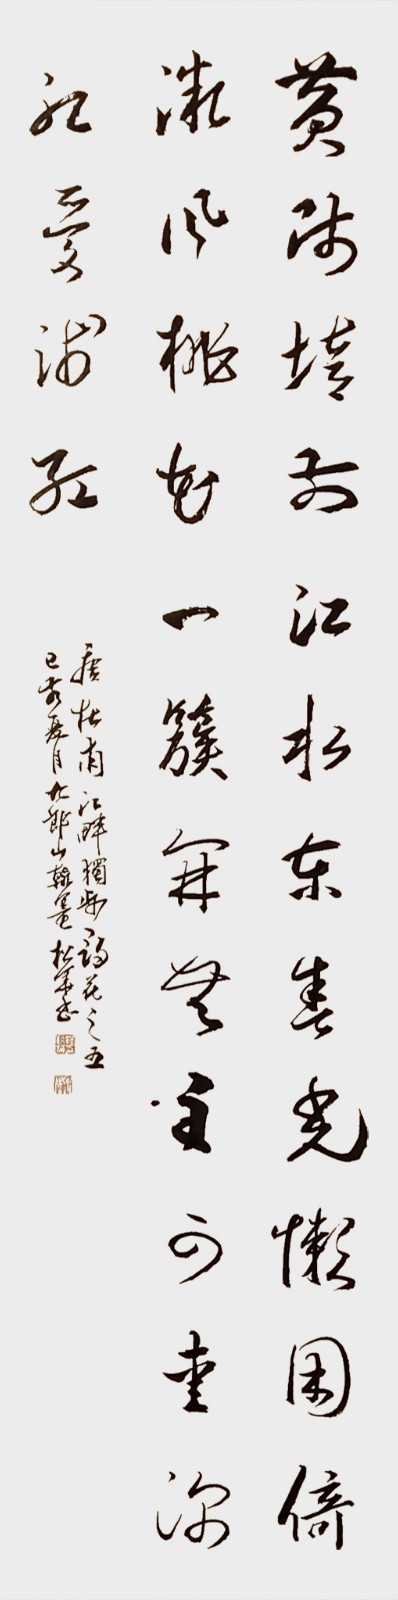 黄师塔前江水东春光懒困倚
微风桃花一簇开无主可爱深
红爱浅红
唐杜甫江畔獨步尋花之五
己亥夏月九郎山翰墨